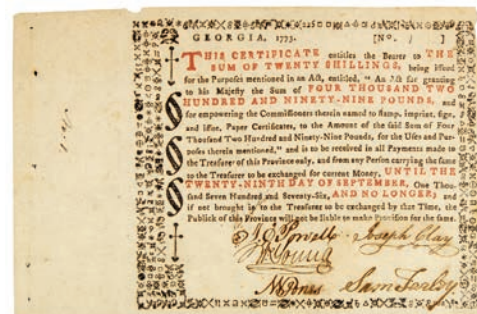 GEORGIA, 1773. [No. ]
THIS CERTIFICATE entitles the Bearer to THE
SUM OF TWENTY SHILLINGS, being issued
for the Purposes mentioned in an Act, entitled, "An Act for granting
to his Majesty the Sum of FOUR THOUSAND TWO
HUNDRED AND NINETY-NINE POUNDS, and
for empowering the Commissioners therein named to stamp, imprint, sign,
and issue, Paper Certificates, to the Amount of the said Sum of Four
Thousand Two Hundred and Ninety-Nine Pounds, for the Uses and Pur-
poses therein mentioned," and is to be received in all Payments made to
the Treasurer of this Province only, and from any Person carrying the same
to the Treasurer to be exchanged for current Money, UNTIL THE
TWENTY-NINTH DAY OF SEPTEMBER, One Thou-
sand Seven Hundred and Seventy-Six, AND NO LONGER; and
if not brought in to the Treasurer to be exchanged by that Time, the
Publick of this Province will not be liable to make Provision for the same.
Powell Joseph Clay
Young
N W Jones Sam Farley